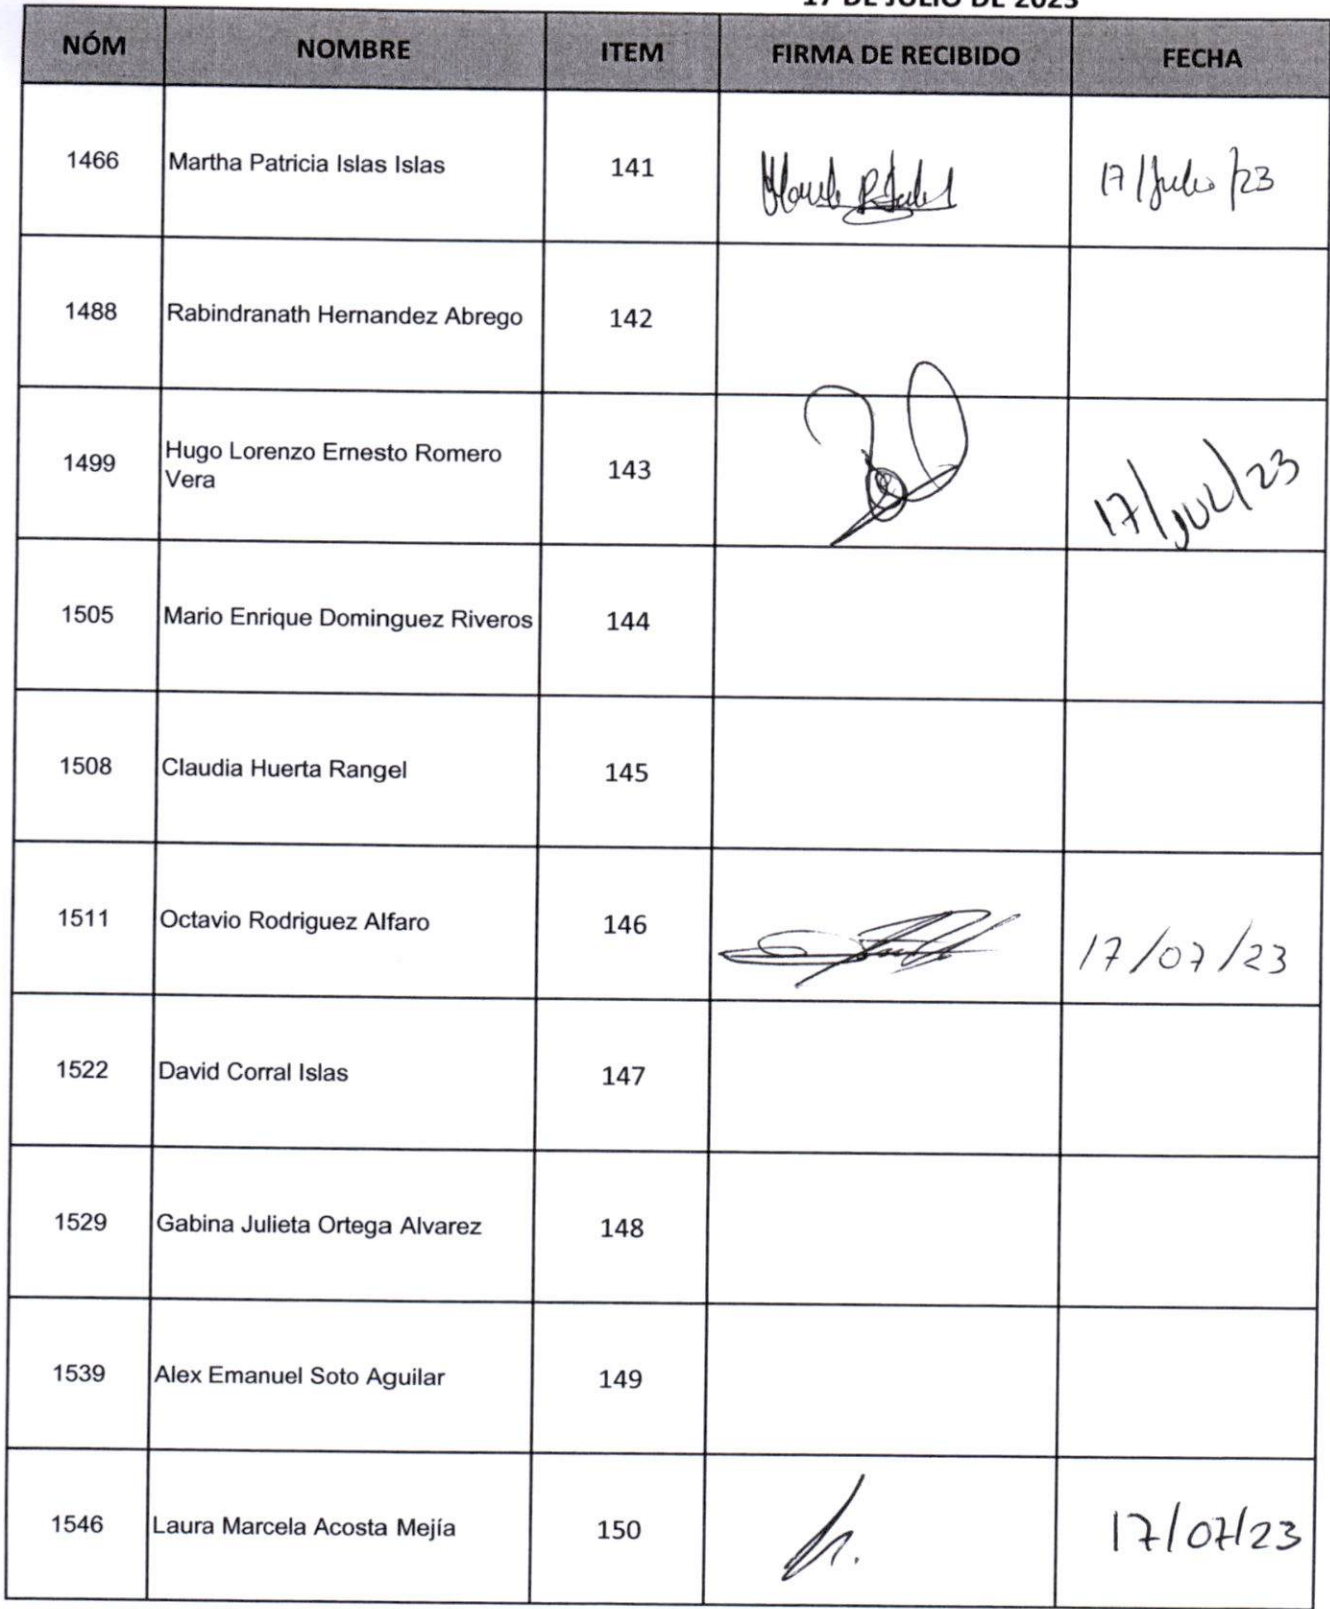 17 DE JULIO DE 2023
NÓM NOMBRE ITEM FIRMA DE RECIBIDO FECHA
1466 Martha Patricia Islas Islas 141 17/Julio/23
1488 Rabindranath Hernandez Abrego 142
1499 Hugo Lorenzo Ernesto Romero
Vera 143 17/JUL/23
1505 Mario Enrique Dominguez Riveros 144
1508 Claudia Huerta Rangel 145
1511 Octavio Rodriguez Alfaro 146 17/07/23
1522 David Corral Islas 147
1529 Gabina Julieta Ortega Alvarez 148
1539 Alex Emanuel Soto Aguilar 149
1546 Laura Marcela Acosta Mejía 150 17/07/23